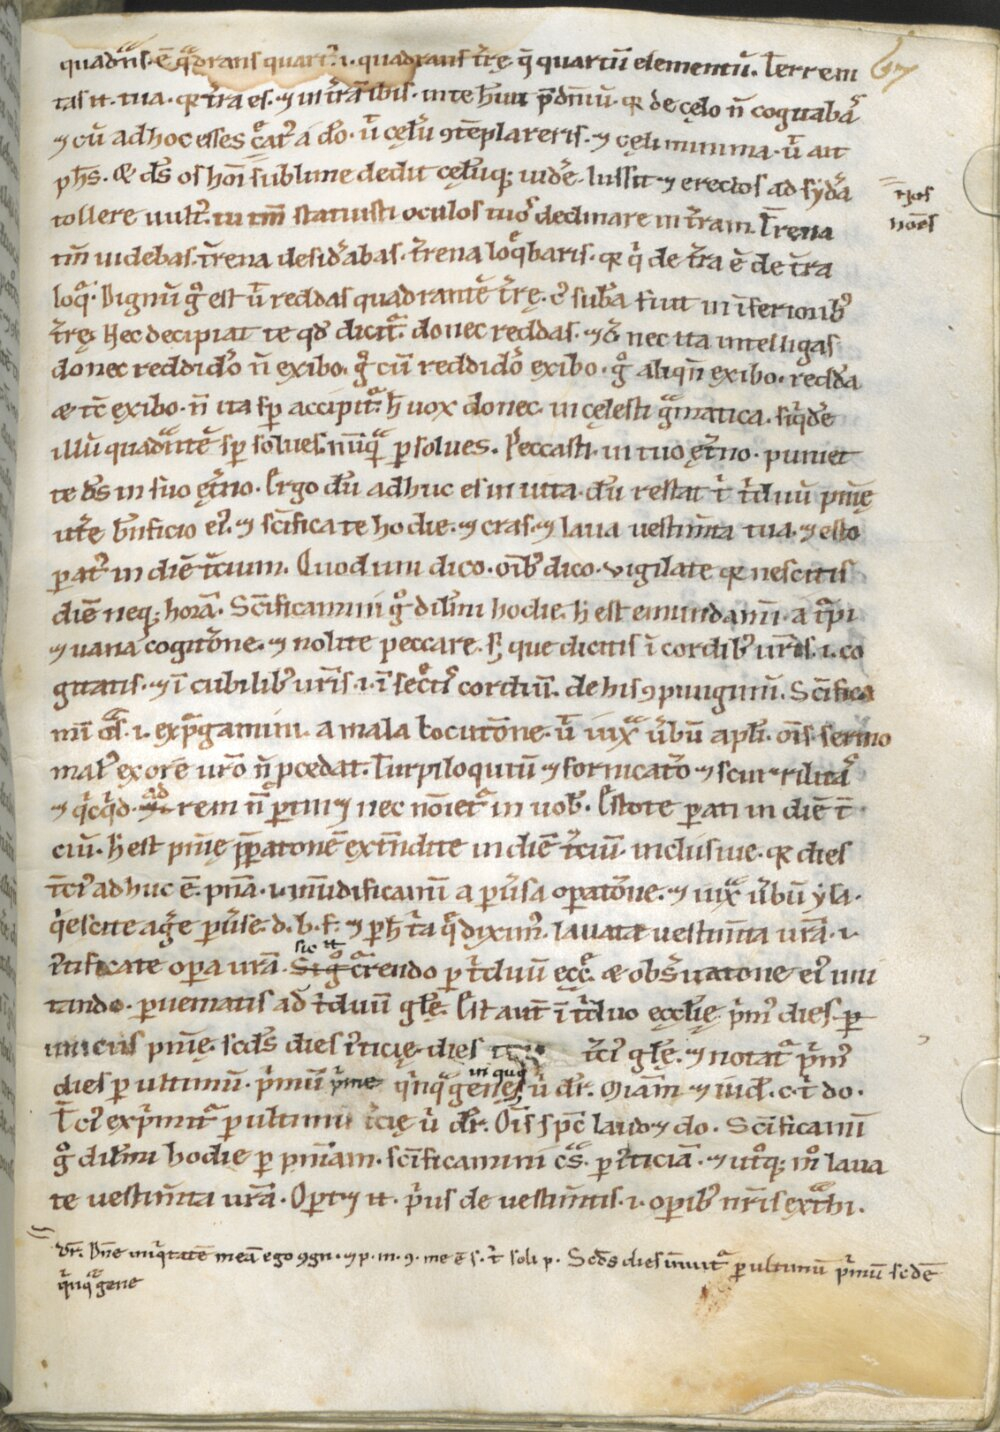 quadns · ē qdrans quart᷒ · i · quadrans t̄rę · q̄ quartū elementū · Terrem
tas it · tua · qr t̄ra es · ⁊ in t̄rā ibis · in te hūit p̄dn̄iū · qr de cęlo n̄ cogitabas
⁊ cū ad hoc esses c̄at᷒ a d̄o · ut cęlū ɔtēplareris · ⁊ cęli numina · ut̄ ait
ph̄s · & d̄s os hōi sublime dedit cęlūq; uidē · Iussit ⁊ erectos ad sydā
tollere uult᷒ · tu tm̄ statuisti oculos tuos declinare in t̄ram · T̄rena
tm̄ uidebas · t̄rena desid̄abas · t̄rena loq̄baris · qr q̄ de t̄ra ē de t̄ra
loq̄ · Dignū g̊ est ut̄ reddas quadrantē t̄rę · subā fiut in inferiorib᷒
t̄rę · Hec decipiat te qd̄ dicit᷒ · donec reddas · nec ita intelligas
donec reddid̄o n̄ exibo · g̊ cū reddid̄o exibo · g̊ aliqn̄ exibo · reddā
& tc̄ exibo · n̄ ita sp̄ accipit᷒ · h̄ uox donec · in cęlesti gmatica · siq̄de
illū quadntē sp̄ solues · nūq̄ psolues · Peccasti · in tuo ęt̄no · puniet
te d̄s in suo ęt̄no · Ergo dū adhuc es in uita · dū restat t̄ t̄duū pn̄ię
ut̄e bn̄ficio ei᷒ · ⁊ sc̄ifica te hodie · ⁊ cras · ⁊ laua uestim̄ta tua · ⁊ esto
parat᷒ in diē t̄cium · Quod uni dico · oīb᷒ dico · vigilate qr nescitis
diē neq; horā · Sc̄ificamini g̊ dil̄mi hodie · h̄ est emundamī · a t̄pi
⁊ uana cogit̄one · ⁊ nolite peccare · s; que dicitis ī cordib᷒ ur̄is · i · co
gitatis · ⁊ ī cubilib᷒ ur̄is · i · ī sec̄t᷒ cordiū · de his ɔpungimī · Sc̄ifica
mī · i · expgamini · a mala locut̄one · ut̄ iux ūbū apl̄i · oīs sermo
mal᷒ ex ore ur̄o n̄ pcedat · Turpiloquiū ⁊ fornicat̄o ⁊ scurrilitas
⁊ qc̄qd · ad rem n̄ ptin⁊ nec nōiet᷒ in uob᷒ · Estote pati in diē t̄
ciū · h̄ est pn̄ię ppatonē extn̄dite in diē t̄ciū · inclusiue · qr dies
t̄ci᷒ adhuc ē · pn̄a · i · mūdificamī a pūsa opat̄one · ⁊ iux ūbū ysa ·
q̄escite age pūse · d · b · f · ⁊ ph̄ t̄a q̄ dixim᷒ · lauate uestim̄ta ur̄a · i ·
r̄tificate opa ura · sic it Sig̊ c̄rendo p t̄duū ecc̄ & obs̄uatone ei᷒ uni
tando · puematis ad t̄duū gl̄ę · Est aut̄ ī t̄duo ęcc̄lię p̄m᷒ dies · p
initeus pn̄ię · scd̄s dies i᷒ticię · dies t̄ci᷒ gl̄ę · ⁊ notat᷒ p̄m᷒
dies p ultimū · p̄mū p̄me in qua q̄nq̄gene ū dr̄ · Qīam ⁊ · c · t̄ do ·
T̄ci᷒ exp̄mit᷒ p ultimū t̄cię ū dr̄ · Oīs sp̄c laud⁊ do · Sc̄ificamī
g̊ dil̄mi hodie p pn̄iam · sc̄ificamini c̄s · p i᷒ticiā · ⁊ utq; m̊ laua
te uestim̄ta ur̄a · Oport⁊ it · p̄us de uestim̄tis · i · opib᷒ nr̄is exthi ·
Dr̄ · Dn̄e iniq̄tatē meā ego ɔgn · ⁊ p · m · ɔ · me ē s · t̄ soli p · Scd̄s dies inuit᷒ p ultimū p̄mū sc̄dē
q̄nq̄gene
hōēs